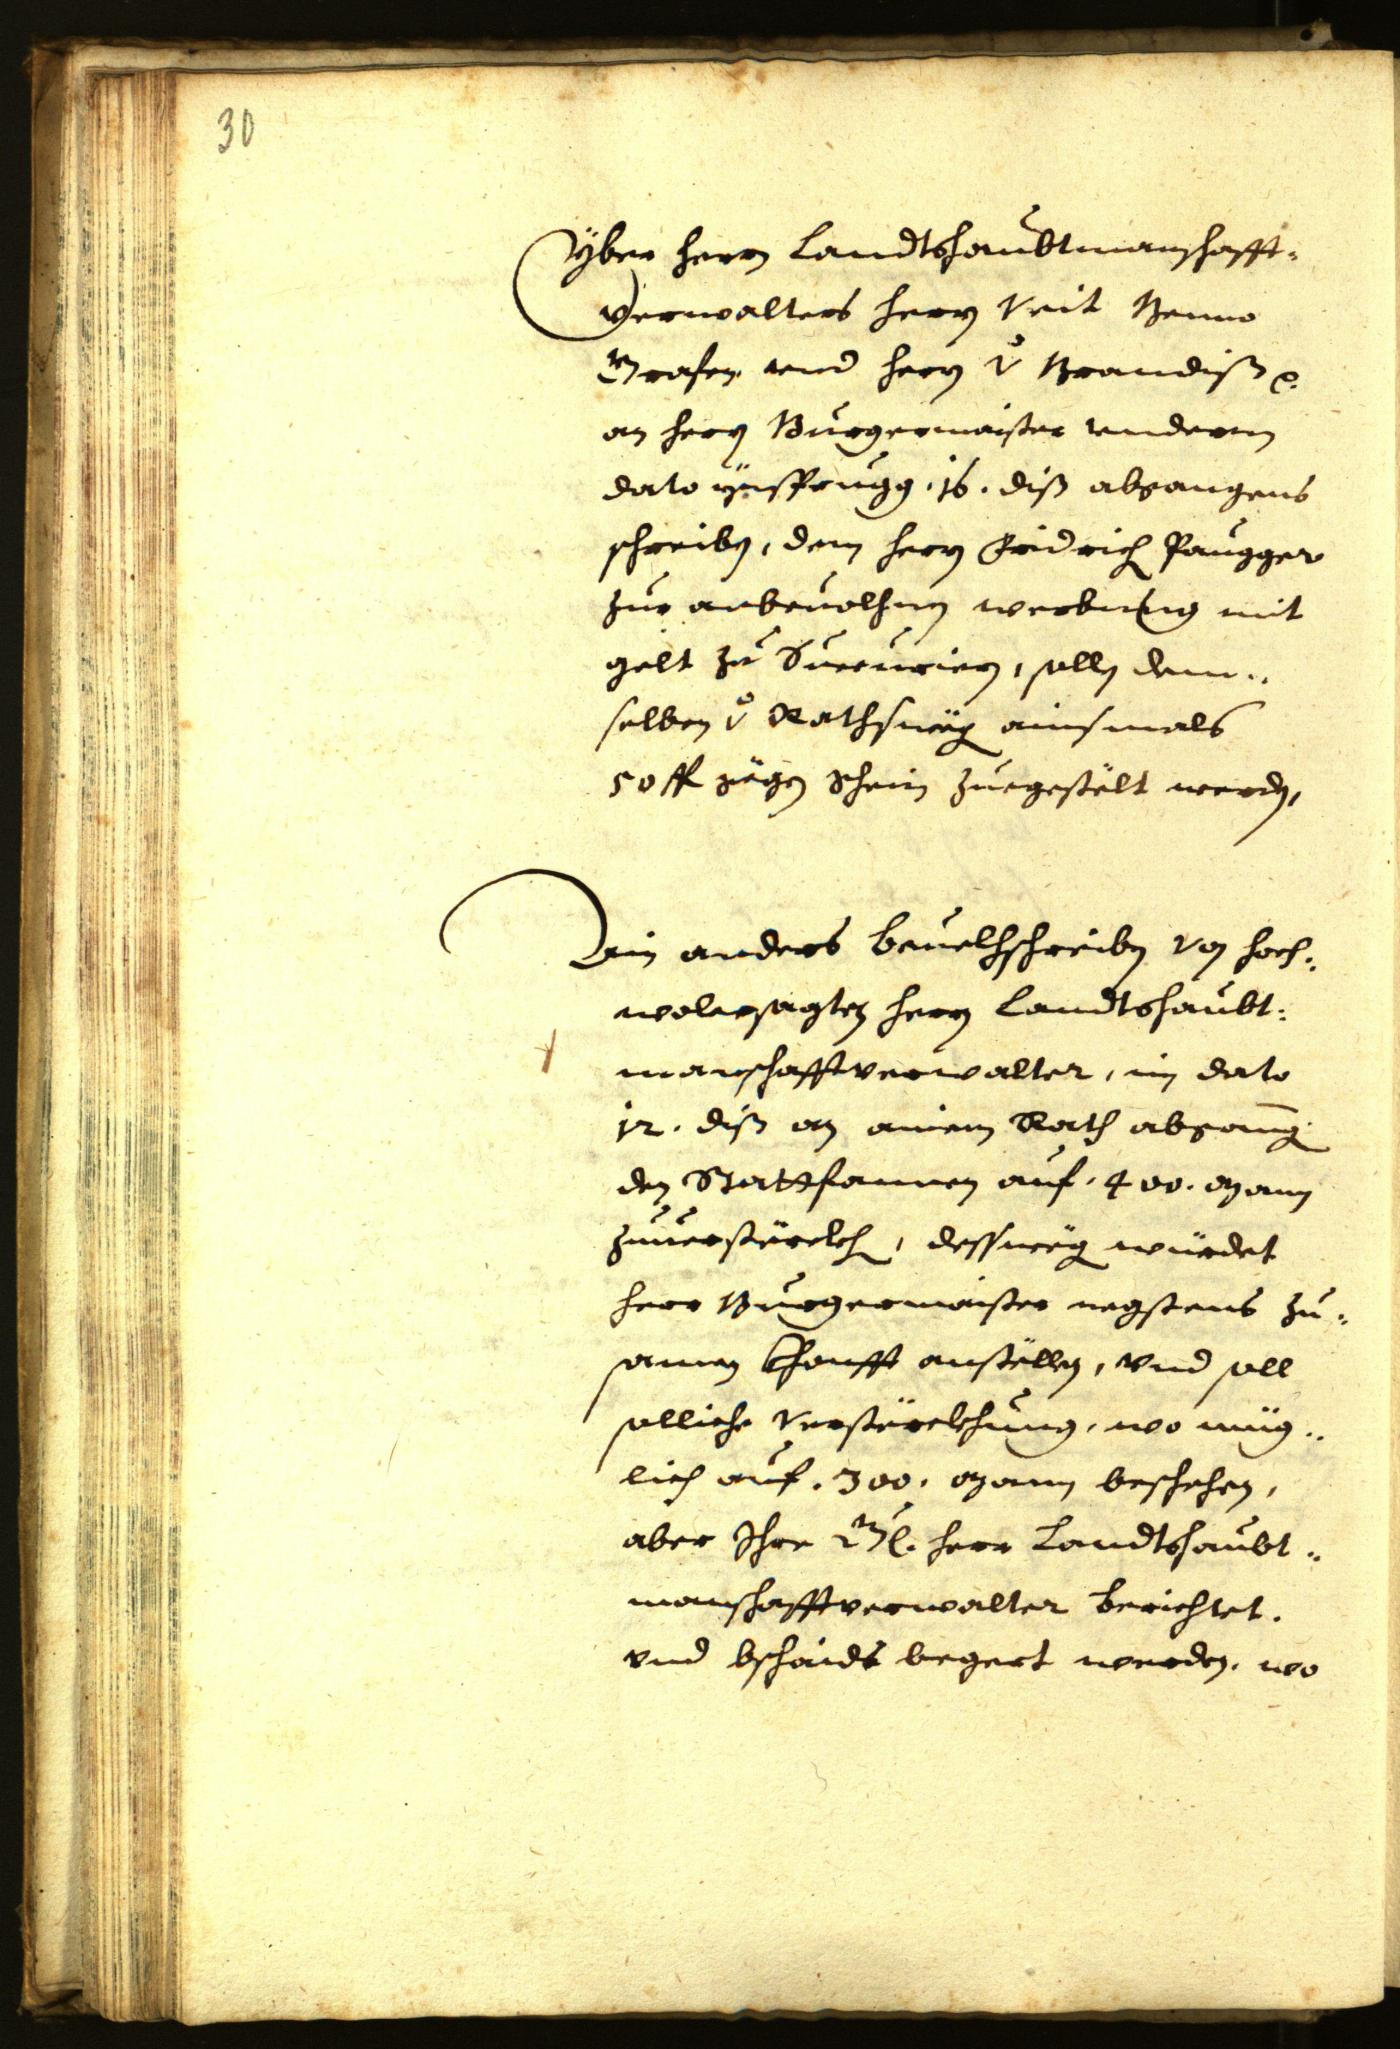 30
Yber herrn Landtshaubtmanschafft=
verwalters herrn Veit Benno
Grafen vnd herrn v Brandiß ꝛc.
an herrn Burgermaister vnderm
dato Ynsprugg .16. diß abgangens
schreiben, dem herrn Fridrich Paugger
zur anbeuolhnen werbung mit
gelt zu Succuriern, sollen dem=
selben v Rathsweg ainsmals
50 fl gegen Schein zuegestelt werden,
Ain anders beuelhschreiben von hoch=
wolersagten herrn Landtshaubt=
manschafftverwalter, im dato
12. diß an ainem Rath abgang
den Stattfannen auf .400. Mann
zuuersterckhen, dessweg würdet
herr Burgermaister negstens zu=
samen khonfft anstellen, vnd soll
solliche Versterckhung, wo müg=
lich auf .300. Mann beschehen,
aber Ihre Gl. herr Landtshaubt=
manschafftverwalter berichtet.
vnd bschaidts begert werden. wo